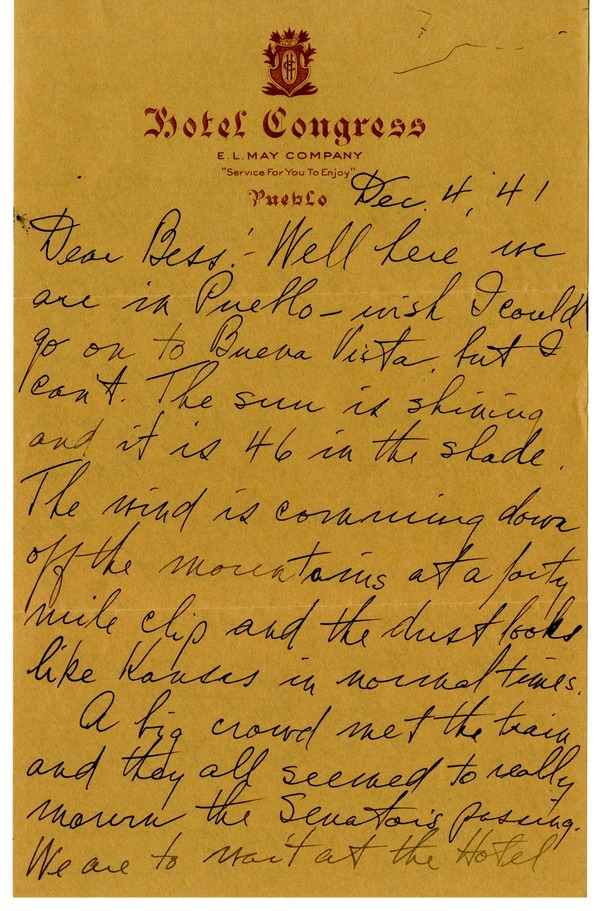 Hotel Congress
E. L. MAY COMPANY
"Service For You To Enjoy"
Pueblo Dec. 4, '41
Dear Bess:- Well here we
are in Pueblo - wish I could
go on to Buena Vista, but I
can't. The sun is shining
and it is 46 in the shade.
The wind is comming down
off the mountains at a forty
mile clip and the dust looks
like Kansas in normal times.
A big crowd met the train
and they all seemed to really
mourn the Senator's passing.
We are to wait at the Hotel